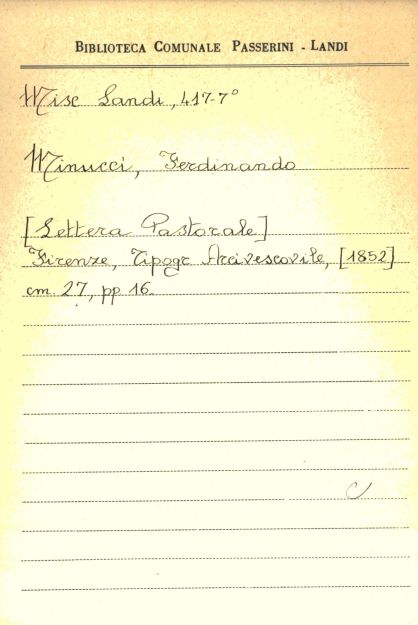 BIBLIOTECA COMUNALE PASSERINI - LANDI
Misc Landi, 417-7°
Minucci, Ferdinando
[Lettera Pastorale]
Firenze, Tipogr Arcivescovile, [1852]
cm 27, pp 16.
C